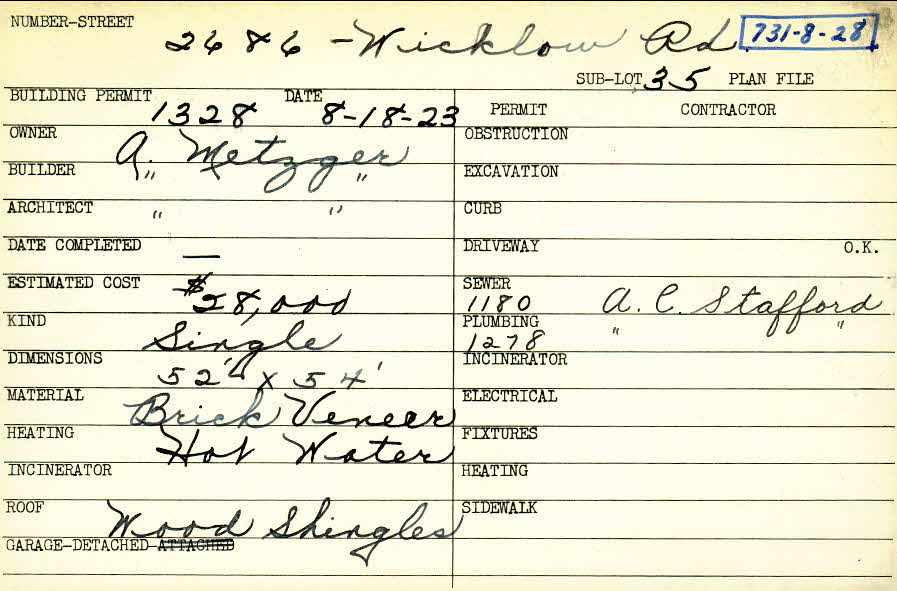 NUMBER-STREET
2686 - Wicklow Rd. 731-8-28
SUB-LOT 35 PLAN FILE
BUILDING PERMIT 1328 DATE 8-18-23
PERMIT CONTRACTOR
OWNER A. Metzger
OBSTRUCTION
BUILDER " "
EXCAVATION
ARCHITECT " "
CURB
DATE COMPLETED —
DRIVEWAY O.K.
ESTIMATED COST $28,000
SEWER 1180 A. C. Stafford
KIND Single
PLUMBING 1278 " "
DIMENSIONS 52' x 54'
INCINERATOR
MATERIAL Brick Veneer
ELECTRICAL
HEATING Hot Water
FIXTURES
INCINERATOR
HEATING
ROOF Wood Shingles
SIDEWALK
GARAGE-DETACHED-ATTACHED